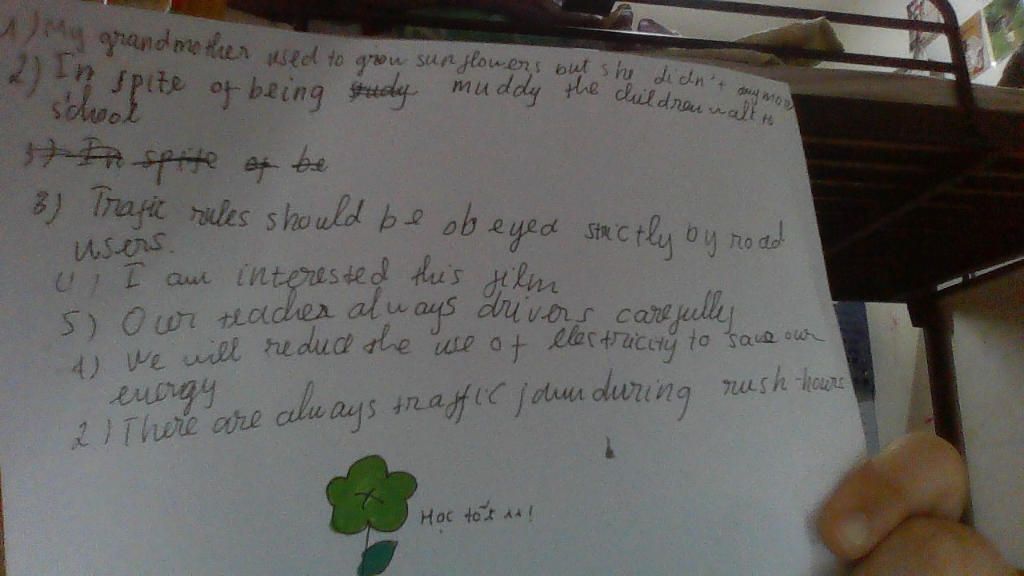 1) My grandmother used to grow sunflowers but she didn't anymore
2) In spite of being muddy the children walk to
school
3) In spite of be
3) Trafic rules should be obeyed strictly by road
users.
4) I am interested this film
5) Our teacher always drivers carefully
1) We will reduce the use of electricity to save our
energy
2) There are always traffic jam during rush hours
Học tốt ^^!